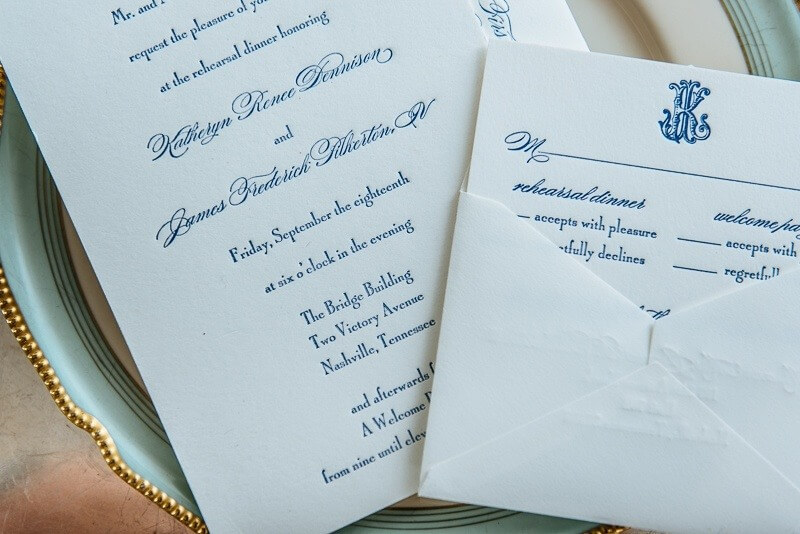 Mr. and
request the pleasure of
at the rehearsal dinner honoring
Katheryn Renee Tennison
and
James Frederick Pilkerton, IV
Friday, September the eighteenth
at six o'clock in the evening
The Bridge Building
Two Victory Avenue
Nashville, Tennessee
and afterwards
A Welcome
from nine until
JK
M
rehearsal dinner
accepts with pleasure
declines
welcome
accepts with